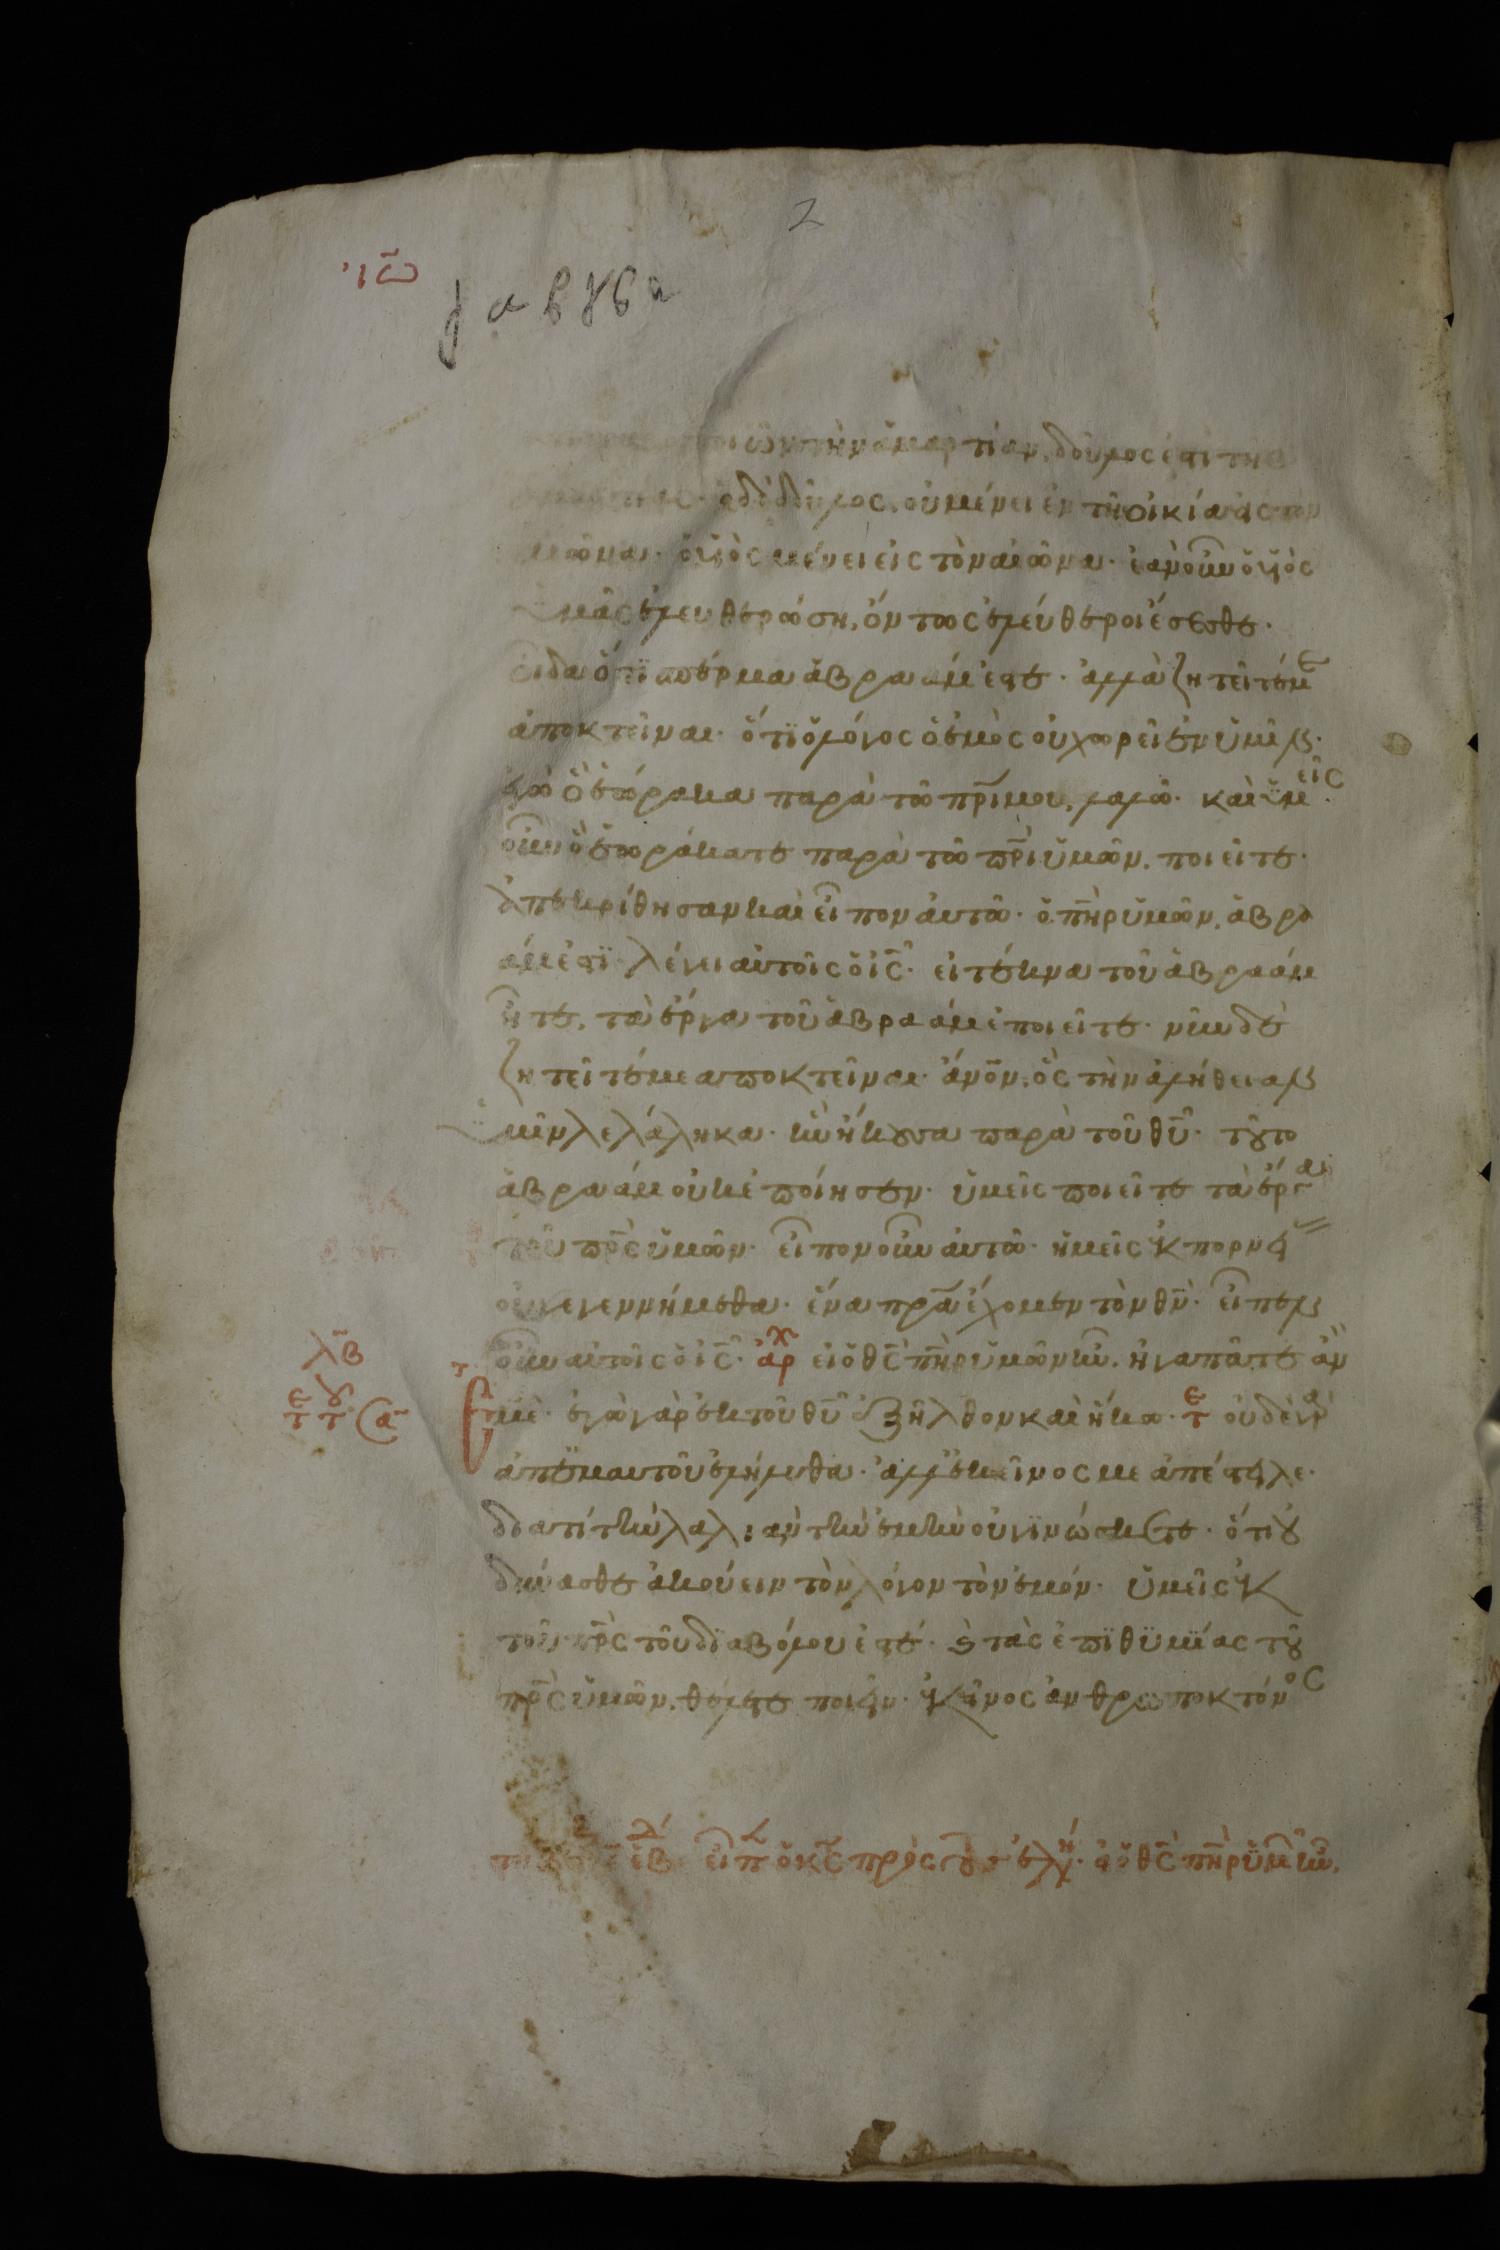 2
ιω
α β γ β α
ποιῶν τὴν ἁμαρτίαν. δοῦλος ἐστι τῆς
ὁ δὲ δοῦλος. οὐ μένει ἐν τῆ οἰκία εἰς τὸν
αἰῶνα. ὁ υἱὸς μένει εἰς τὸν αἰῶνα. ἐὰν οὖν ὁ υἱὸς
ὑμᾶς ἐλευθερώση, ὄντως ἐλεύθεροι ἔσεσθε.
οἶδα ὅτι σπέρμα ἀβραάμ ἐστε. ἀλλὰ ζητεῖτέ με
ἀποκτεῖναι. ὅτι ὁ λόγος ὁ ἐμὸς οὐ χωρεῖ ἐν ὑμῖν.
ἐγὼ ὃ ἑώρακα παρὰ τῶ πρι μου, λαλῶ. καὶ ὑμεῖς
οὖν ὃ ἑωράκατε παρὰ τῶ πρι ὑμῶν. ποιεῖτε.
ἀπεκρίθησαν καὶ εἶπον αὐτῶ. ὁ πηρ ὑμῶν. ἀβρα
άμ ἐστι. λέγει αὐτοῖς ὁ ις. εἰ τέκνα τοῦ ἀβραάμ
ἦτε. τὰ ἔργα τοῦ ἀβραάμ ἐποιεῖτε. νῦν δὲ
ζητεῖτέ με ἀποκτεῖναι. ἀνον. ὃς τὴν ἀλήθειαν
ὑμῖν λελάληκα. ἣν ἤκουσα παρὰ τοῦ θυ. τοῦτο
ἀβραάμ οὐκ ἐποίησεν. ὑμεῖς ποιεῖτε τὰ ἔργα
τοῦ πρς ὑμῶν. εἶπον οὖν αὐτῶ. ἡμεῖς ἐκ πορνείας
οὐ γεγεννήμεθα. ἕνα πρα ἔχομεν τὸν θν. εἶπεν
οὖν αὐτοῖς ὁ ις. ἀρχ εἰ ὁ θς πηρ ὑμῶν ἦν. ἠγαπᾶτε ἂν
λβ
ἐμέ. ἐγὼ γὰρ ἐκ τοῦ θυ ἐξῆλθον καὶ ἥκω. τε οὐδὲ γὰρ
ἀπ' ἐμαυτοῦ ἐλήλυθα. ἀλλ' ἐκεῖνος με ἀπέστειλε.
διατί τὴν λαλιὰν τὴν ἐμὴν οὐ γινώσκετε. ὅτι οὐ
δύνασθε ἀκούειν τὸν λόγον τὸν ἐμόν. ὑμεῖς ἐκ
τοῦ πρς τοῦ διαβόλου ἐστέ. καὶ τὰς ἐπιθυμίας τοῦ
πρς ὑμῶν. θέλετε ποιεῖν. ἐκεῖνος ἀνθρωποκτόνος
εἶπ ὁ κς πρὸς εἰ ὁ θς πηρ ὑμῶν ἦν.